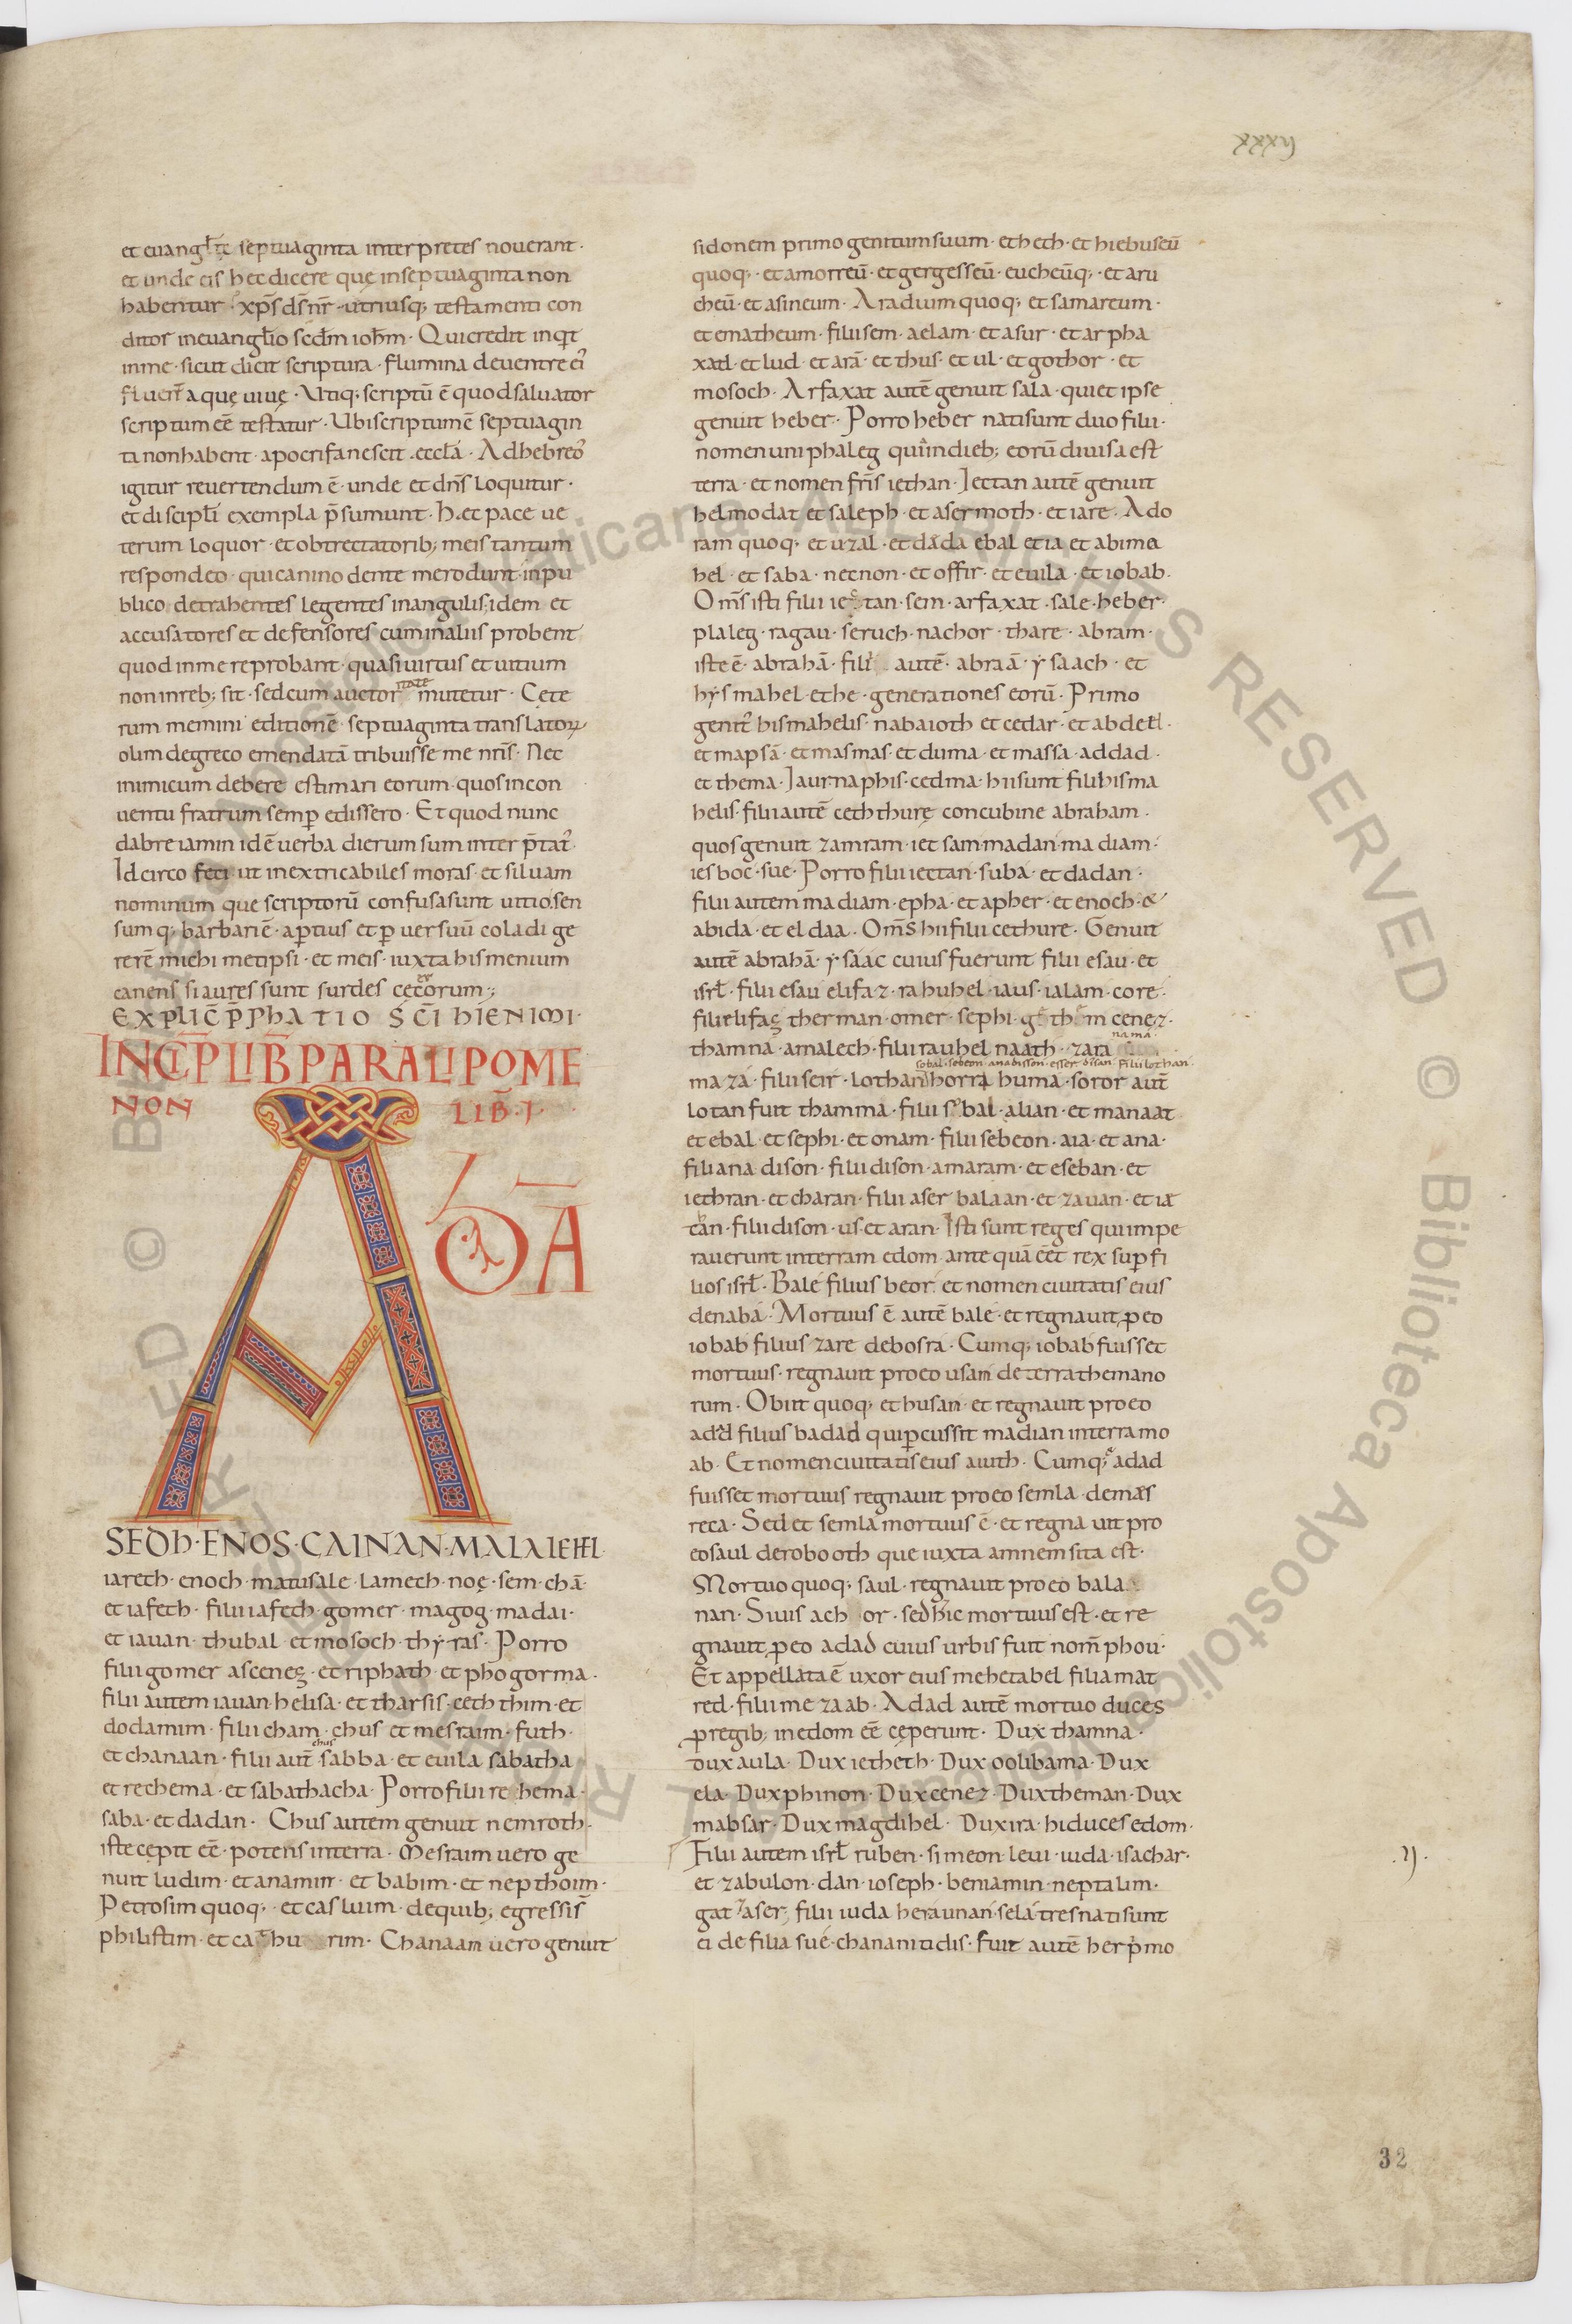 xxxii
et euangłtę septuaginta interpretes nouerant·
et unde eis hec dicere quę inseptuaginta non
habentur· xp̄s ds̄ nr̄ utriusq; testamenti con
ditor ineuangłio scd̄m ioh̄m· Qui credit inqt
inme· sicut dicit scriptura· flumina deuentre ei
fluent aquę uiuę· Utiq; scriptū ē quod saluator
scriptum eē testatur· Ubi scriptum ē septuagin
ta non habent· apocrifa nescit ecctā· Adhebreos
igitur reuertendum ē· unde et dn̄s loquitur·
et discipłi exempla p̄sumunt· Hec pace ue
terum loquor· et obtrectatorib; meis tantum
respondeo· qui canino dente me rodunt· inpu
blico detrahentes legentes inangulis· idem et
accusatores et defensores cum inaliis probent
quod inme reprobant· quasi uirtus et uitium
non inreb; sit· sed cum auctoritate mutetur· Cete
rum memini editionē septuaginta translatorꝝ
olim degreco emendatā tribuisse me nr̄is· Nec
inimicum debere estimari eorum· quos incon
uentu fratrum semp̄ edissero· Et quod nunc
dabreiamin idē uerba dierum sum interp̄tatꝰ·
Idcirco feci ut inextricabiles moras· et siluam
nominum que scriptorū confusa sunt uitio· sen
sumq; barbariē· ap̄tius et p̄ uersuū cola dige
rerē michi metipsi· et meis· iuxta hismenium
canens si aures sunt surdes cęterorum·;
EXPLIC̄ P̄PHATIO SC̄I HIENIMI·
INCIP LIB̄ PARALIPOME
NON LIB̄·I·
ADĀ
SEDH·ENOS·CAINAN·MALALEHEL·
iareth· enoch· matusale· lamech· noę· sem· chā·
et iafeth· filii iafech· gomer· magog· madai·
et iauan· thubal et mosoch· thyras· Porro
filii gomer ascenez· et riphath· et phogorma·
filii autem iauan· helisa· et tharsis· ceththim· et
dodamim· filii cham· chus et mesraim· futh·
et chanaan· filii aut̄ chus sabba· et euila sabatha
et rechema· et sabathacha· Porro filii rehema·
saba· et dadan· Chus autem genuit nemroth·
iste cępit eē· potens interra· Mesraim uero ge
nuit ludim· et anamim· et babim· et nepthoim·
Petrosim quoq;· et casluim· dequib; egressis̄
philistim· et capthurim· Chanaam uero genuit
sidonem primogenitum suum· et heth· et hiebuseū
quoq;· et amorreū· et gergesseū· eucheūq;· et aru
cheū· et asineum· Aradium quoq; et samareum·
et ematheum· filii sem· aelam· et asur· et arpha
xad· et lud· et arā· et thus· et ul· et gothor· et
mosoch· Arfaxat autē genuit sala· qui et ipse
genuit heber· Porro heber nati sunt duo filii·
nomen uni phaleg quia indieb; eorū diuisa est
terra· et nomen fr̄is iethan· Iectan autē genuit
helmodat et saleph· et asermoth· et iare· Ado
ram quoq; et uzal· et dada ebal et ia et abima
hel· et saba· necnon· et offir· et euila· et iobab·
Om̄s isti filii iectan· sem· arfaxat· sale· heber·
plaleg· ragau· seruch· nachor· thare· abram·
iste ē· abrahā· filii autē· abraā· ysaach· et
hysmahel· et he· generationes eorū· Primo
genitꝰ hismahelis· nabaioth et cedar· et abdeel·
et mapsā· et masmas· et duma· et massa· addad·
et thema· Iaur· naphis· cedma· hii sunt filii hisma
helis· filii autē ceththurę concubine abraham·
quos genuit zamram· iet sam· madan· madiam·
iesboc· sue· Porro filii iectan· suba· et dadan·
filii autem madiam· epha· et apher· et enoch· &
abida· et eldaa· Om̄s hii filii cethure· Genuit
autē abrahā· ysaac cuius fuerunt filii esau· et
isrł· filii esau elifaz· rahuhel· iaus· ialam· core·
filii elifaz theman· omer· sephi· gethem cenez·
thamna· amalech· filii rauhel naath· zara
nama·
sobal· sebeon· ana disson· esser· disan· filii lothan·
maza· filii seir· lothan horra huma· soror aut̄
lotan fuit thamma· filii sobal· alian· et manaat
et ebal· et sephi· et onam· filii sebeon· aia· et ana·
filii ana dison· filii dison· amaram· et eseban· et
iethran· et charan· filii aser balaan· et zauan· et ia
can· filii dison· us· et aran· Isti sunt reges qui impe
rauerunt interram edom· ante quā eēt rex sup̄ fi
lios isrł· Bale filius beor· et nomen ciuitatis eius
denaba· Mortuus ē autē bale· et regnauit p̄ eo
iobab filius zare debosra· Cumq; iobab fuisset
mortuus· regnauit pro eo usam deterra themano
rum· Obiit quoq; et husan· et regnauit pro eo
adad filius badad qui p̄cussit madian interra mo
ab· Et nomen ciuitatis eius aiuth· Cumq; adad
fuisset mortuus regnauit pro eo semla· demas
reca· Sed et semla mortuus ē· et regnauit pro
eo saul derobooth que iuxta amnem sita est·
Mortuo quoq; saul· regnauit pro eo bala
nan· Siuis ach or· sed hic mortuus est· et re
gnauit p̄ eo adad cuius urbis fuit nom̄ phou·
Et appellata ē uxor eius mehetabel filia mat
red· filii mezaab· Adad autē mortuo duces
p̄ regib; inedom eē cęperunt· Dux thamna·
dux aula· Dux ietheth· Dux oolibama· Dux
ela· Dux phinon· Dux cenez· Dux theman· Dux
mabsar· Dux magdihel· Dux ira· hi duces edom·
Filii autem isrł ruben· simeon· leui· iuda· isachar·
et zabulon· dan· ioseph· beniamin· neptalim·
gat aser· filii iuda her aunan· sela· tres nati sunt
ei de filia sue· chananitidis· Fuit autē her p̄mo
32